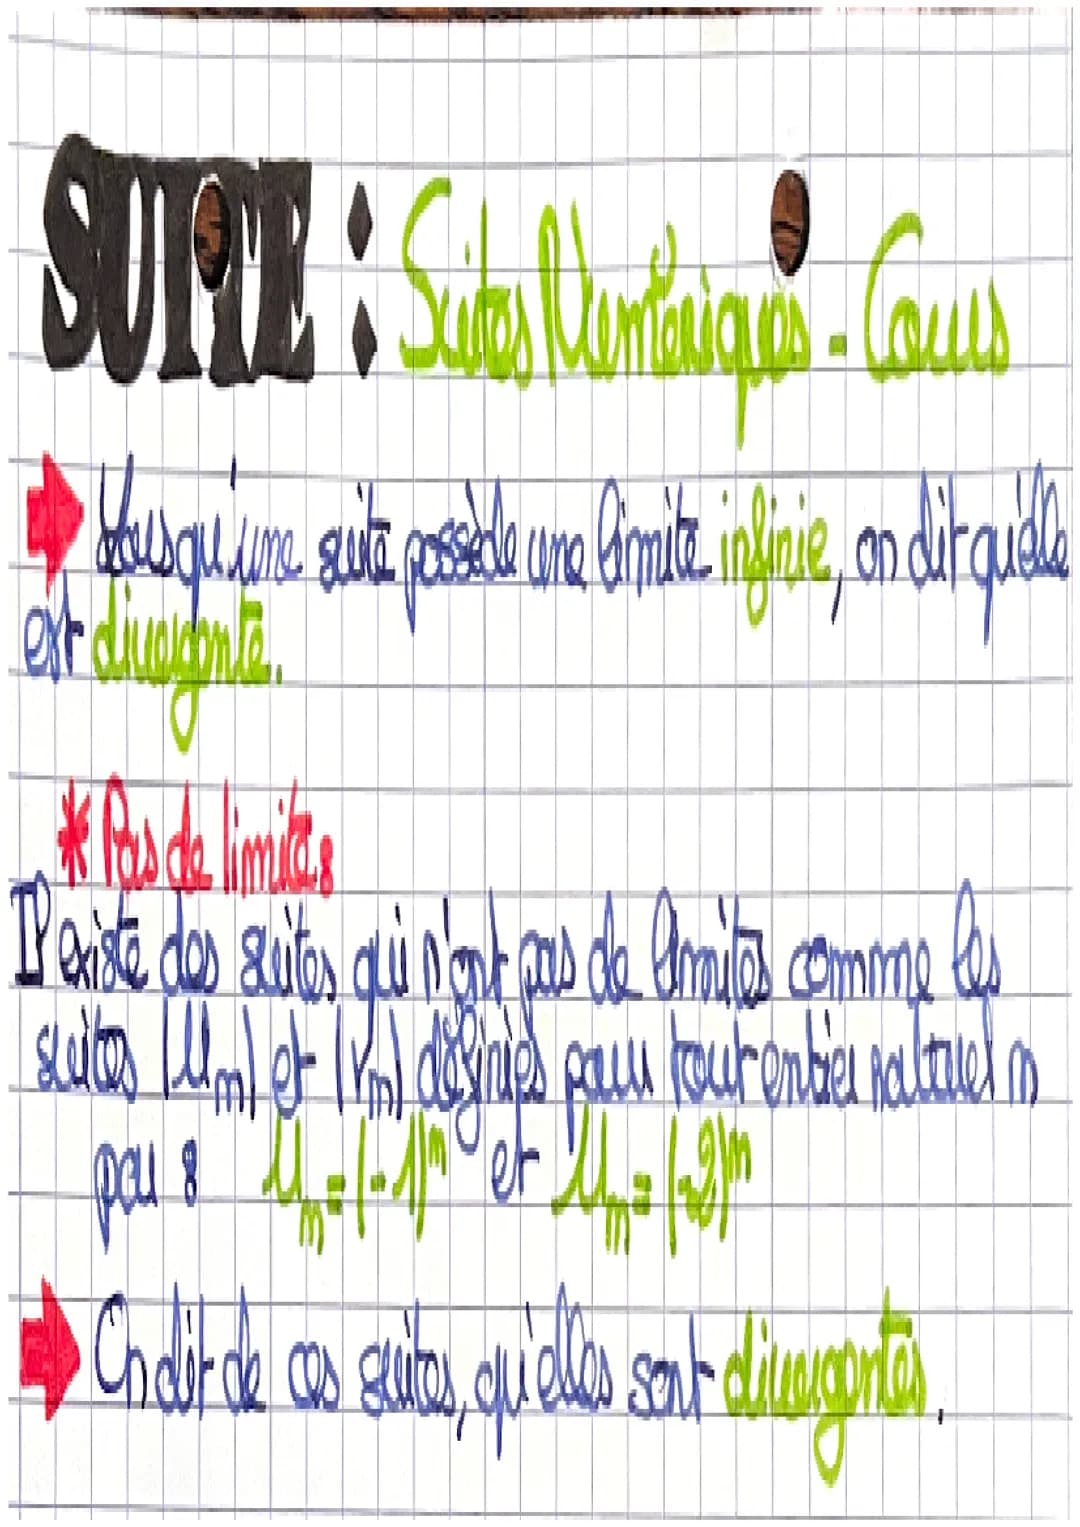 SUITE : Suites Numériques - Cours
Lorsqu'une suite possède une limite infinie, on dit qu'elle
est divergente.
* Pas de limite :
Il existe des suites qui n'ont pas de limites comme les
suites (Un) et (Vn) définies pour tout entier naturel n
par : Un = (-1)ⁿ et Un = (-2)ⁿ
On dit de ces suites, qu'elles sont divergentes.